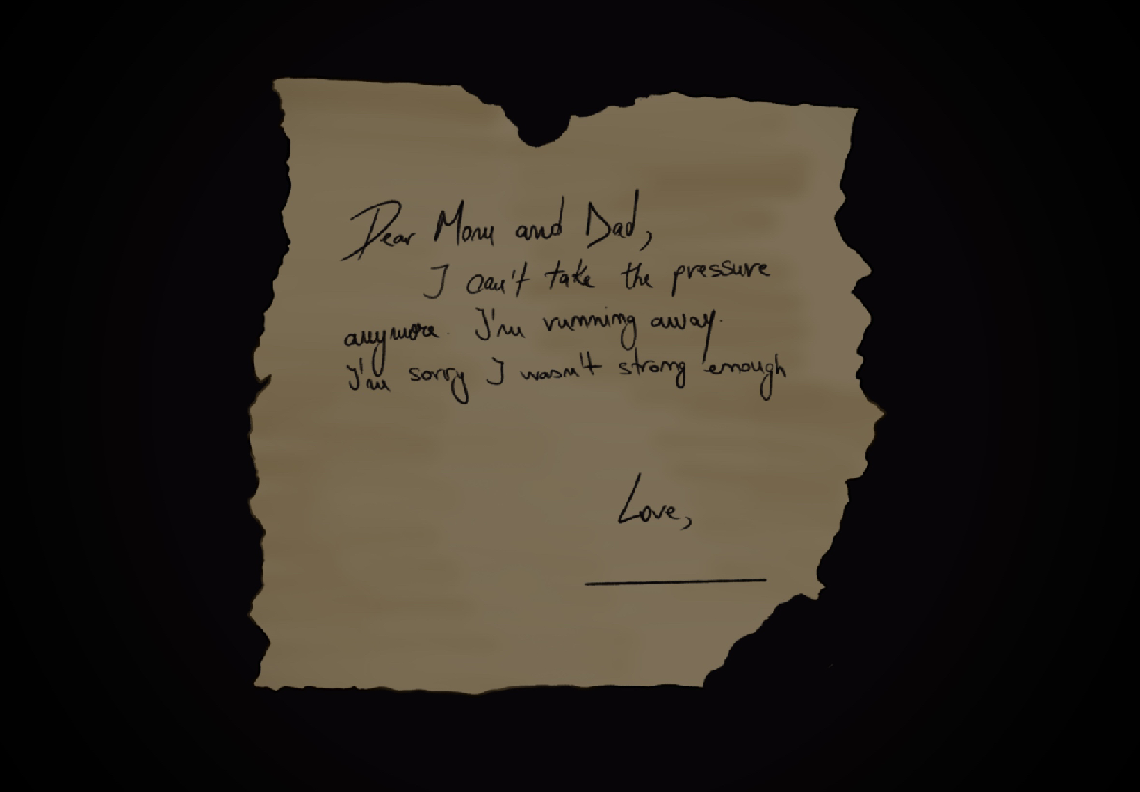 Dear Mom and Dad,
I can't take the pressure
anymore. I'm running away.
I'm sorry I wasn't strong enough
Love,